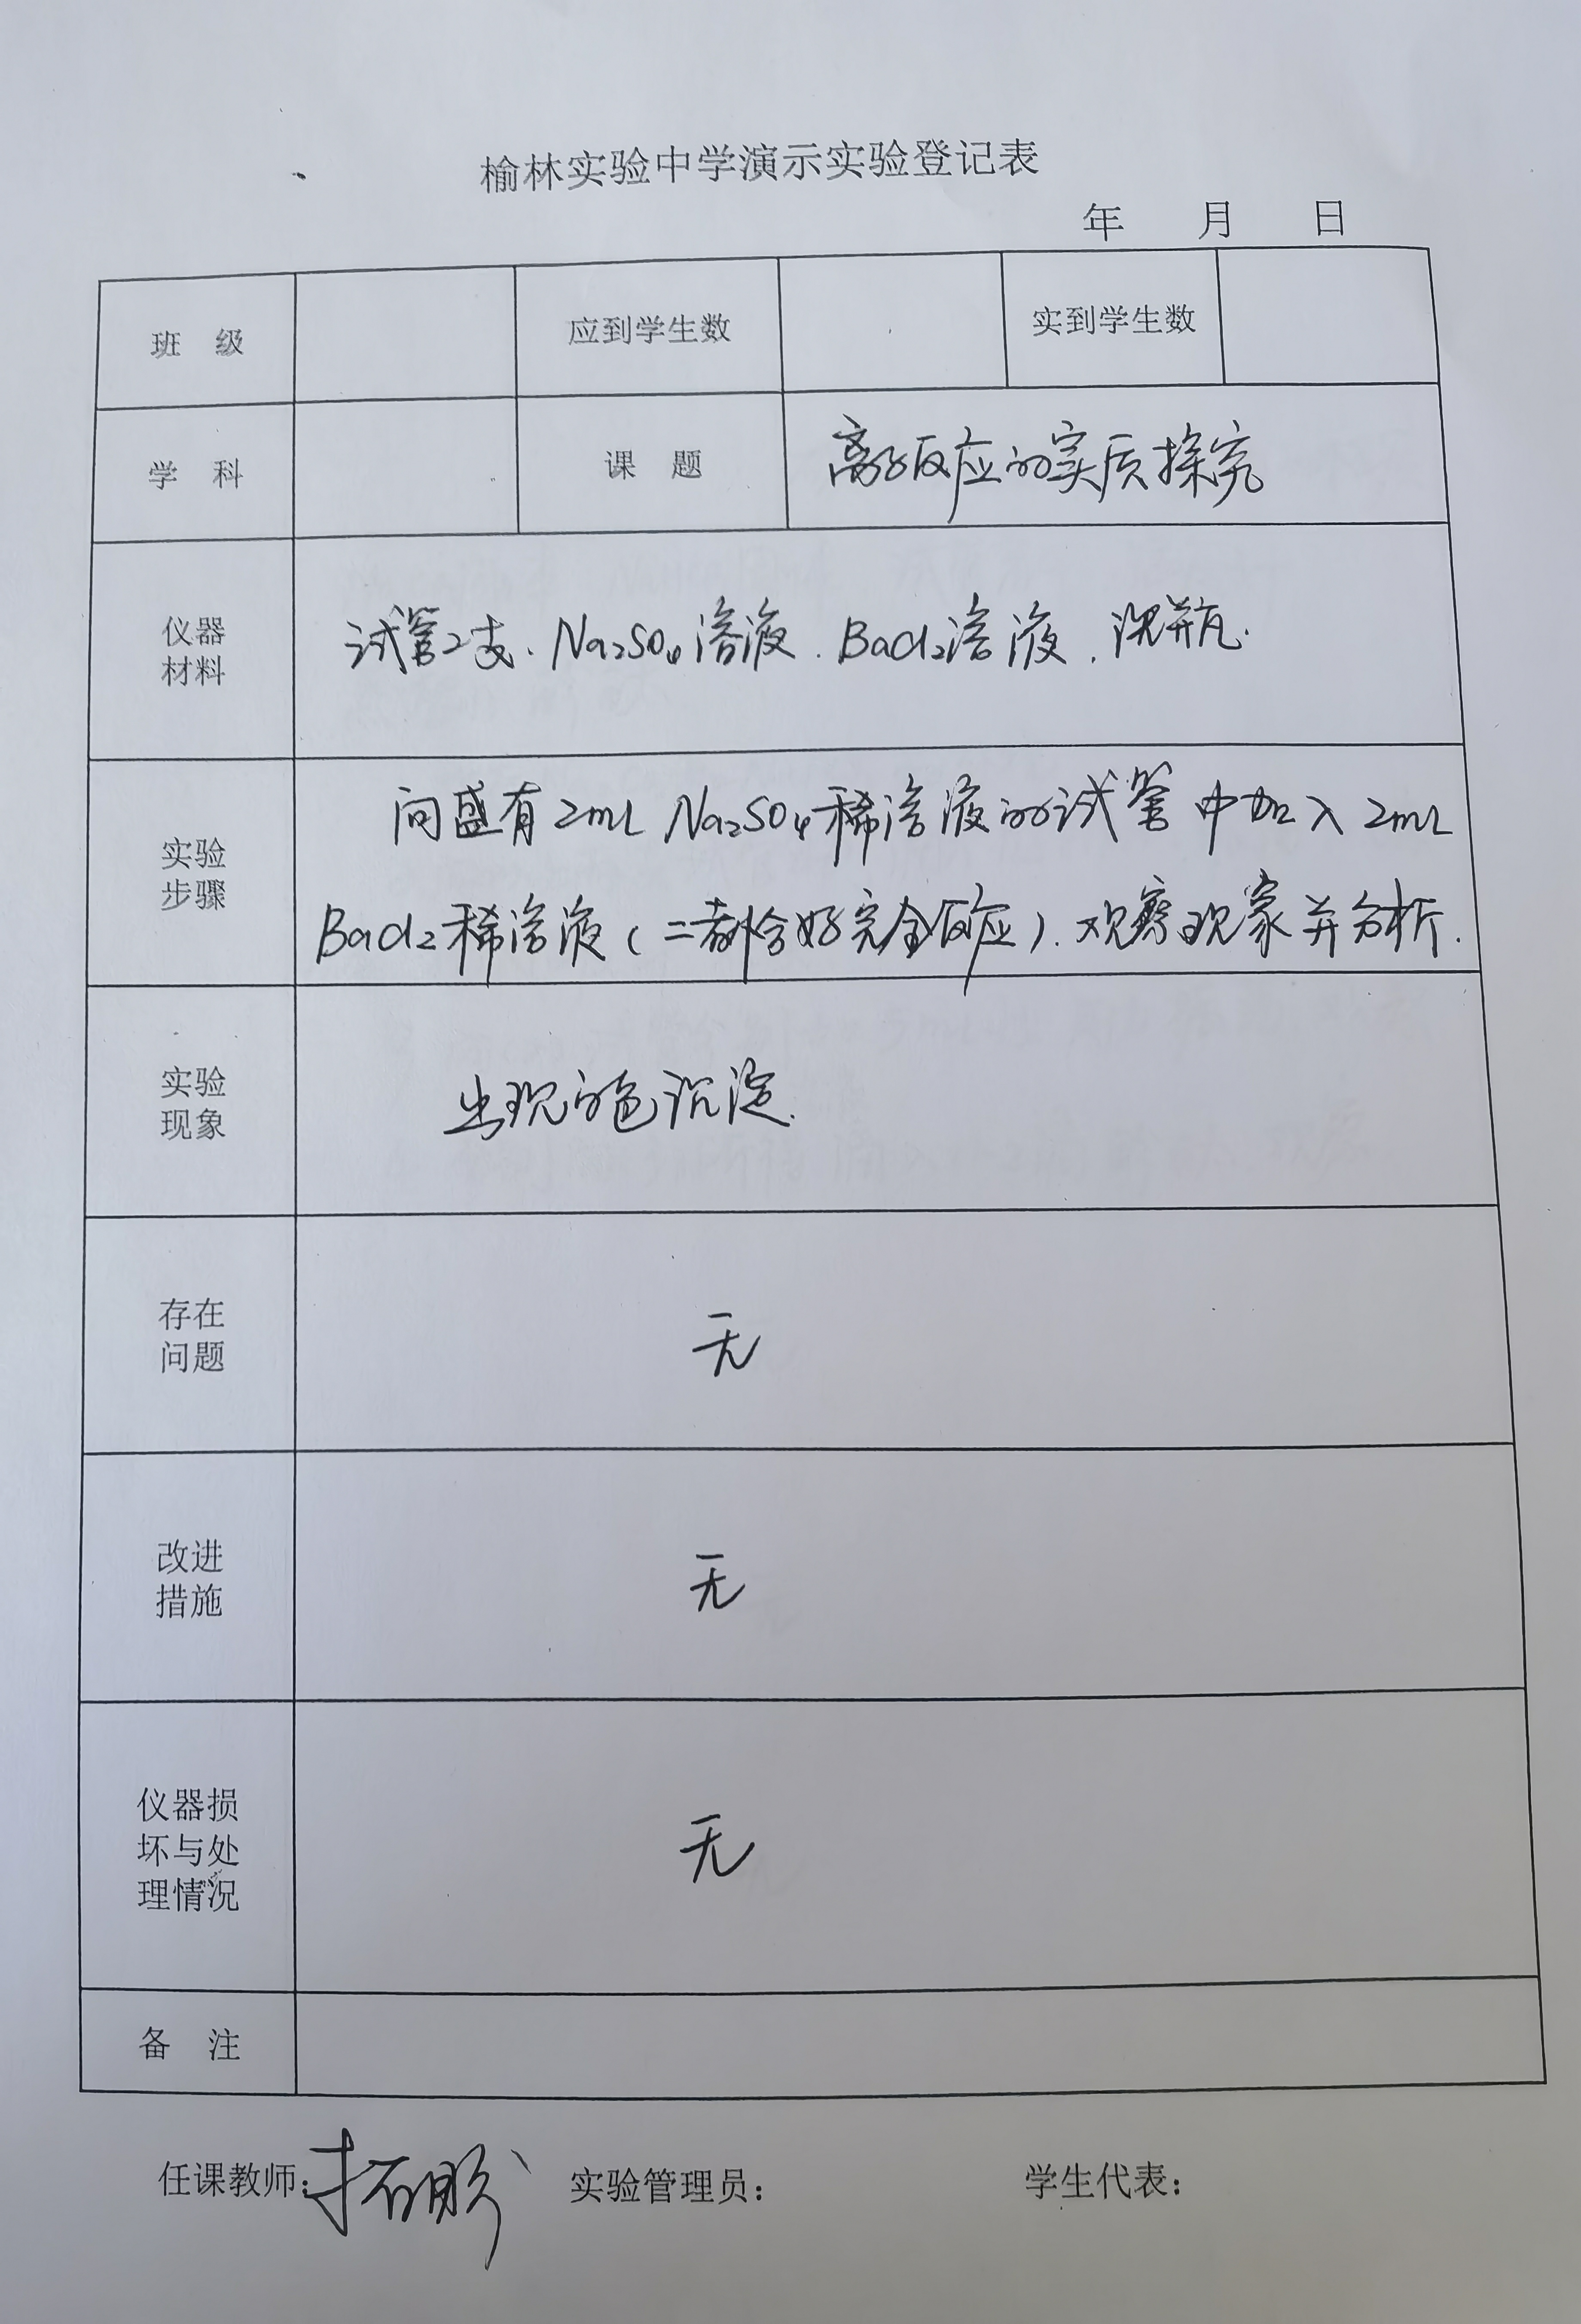 榆林实验中学演示实验登记表
年 月 日
班 级 应到学生数 实到学生数
学 科 课 题 离子反应的实质探究
仪器
材料
试管2支、Na₂SO₄溶液、BaCl₂溶液、洗瓶.
实验
步骤
向盛有2mL Na₂SO₄稀溶液的试管中加入2mL
BaCl₂稀溶液(二者恰好完全反应).观察现象并分析.
实验
现象
出现白色沉淀.
存在
问题
无
改进
措施
无
仪器损
坏与处
理情况
无
备 注
任课教师: 实验管理员: 学生代表: